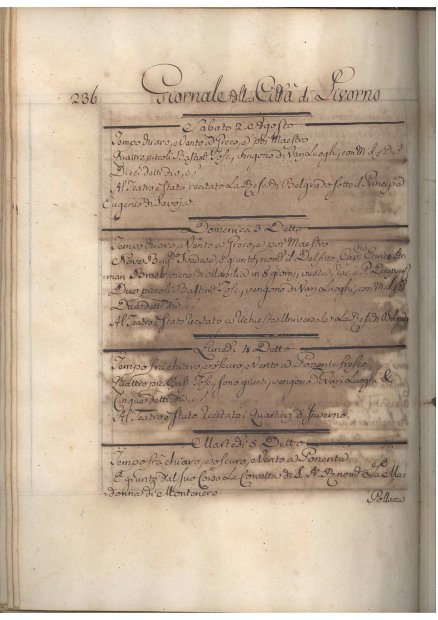 236 Giornale della Città di Livorno
Sabato 2 Agosto
Tempo chiaro, e Vento a Greco, e poi Maestro
Quattro piccoli Bastim.ti Tosc. vengono di Van Luoghi, con M
Dieci detti
Al Teatro è stato recitato La Presa di Belgrado sotto il Principe
Eugenio di Savoja
Domenica 3 Detto
Tempo chiaro, e Vento a Greco, e poi Maestro
Nave è giunta, nom.ta il Delfino Cap.no Enrico
viene di Marsilia in 8 giorni,
Due piccoli Bastim.ti Tosc. vengono di Van Luoghi con M
Due detti
Al Teatro è stato recitato a richiesta Universale La Presa di Belgrado
Lunedì 4 Detto
Tempo frà chiaro, e oscuro, e Vento a Ponente fresco
Quattro Tosc. sono giunti, vengono di Van Luoghi
Cinque detti
Al Teatro è stato recitato i Quartieri d'Inverno
Martedì 5 Detto
Tempo frà chiaro, e oscuro, e Vento a Ponente
È giunto dal suo Corso La Corvetta di S. A. R. nom.ta La Ma-
donna di Montenero
Pollacca